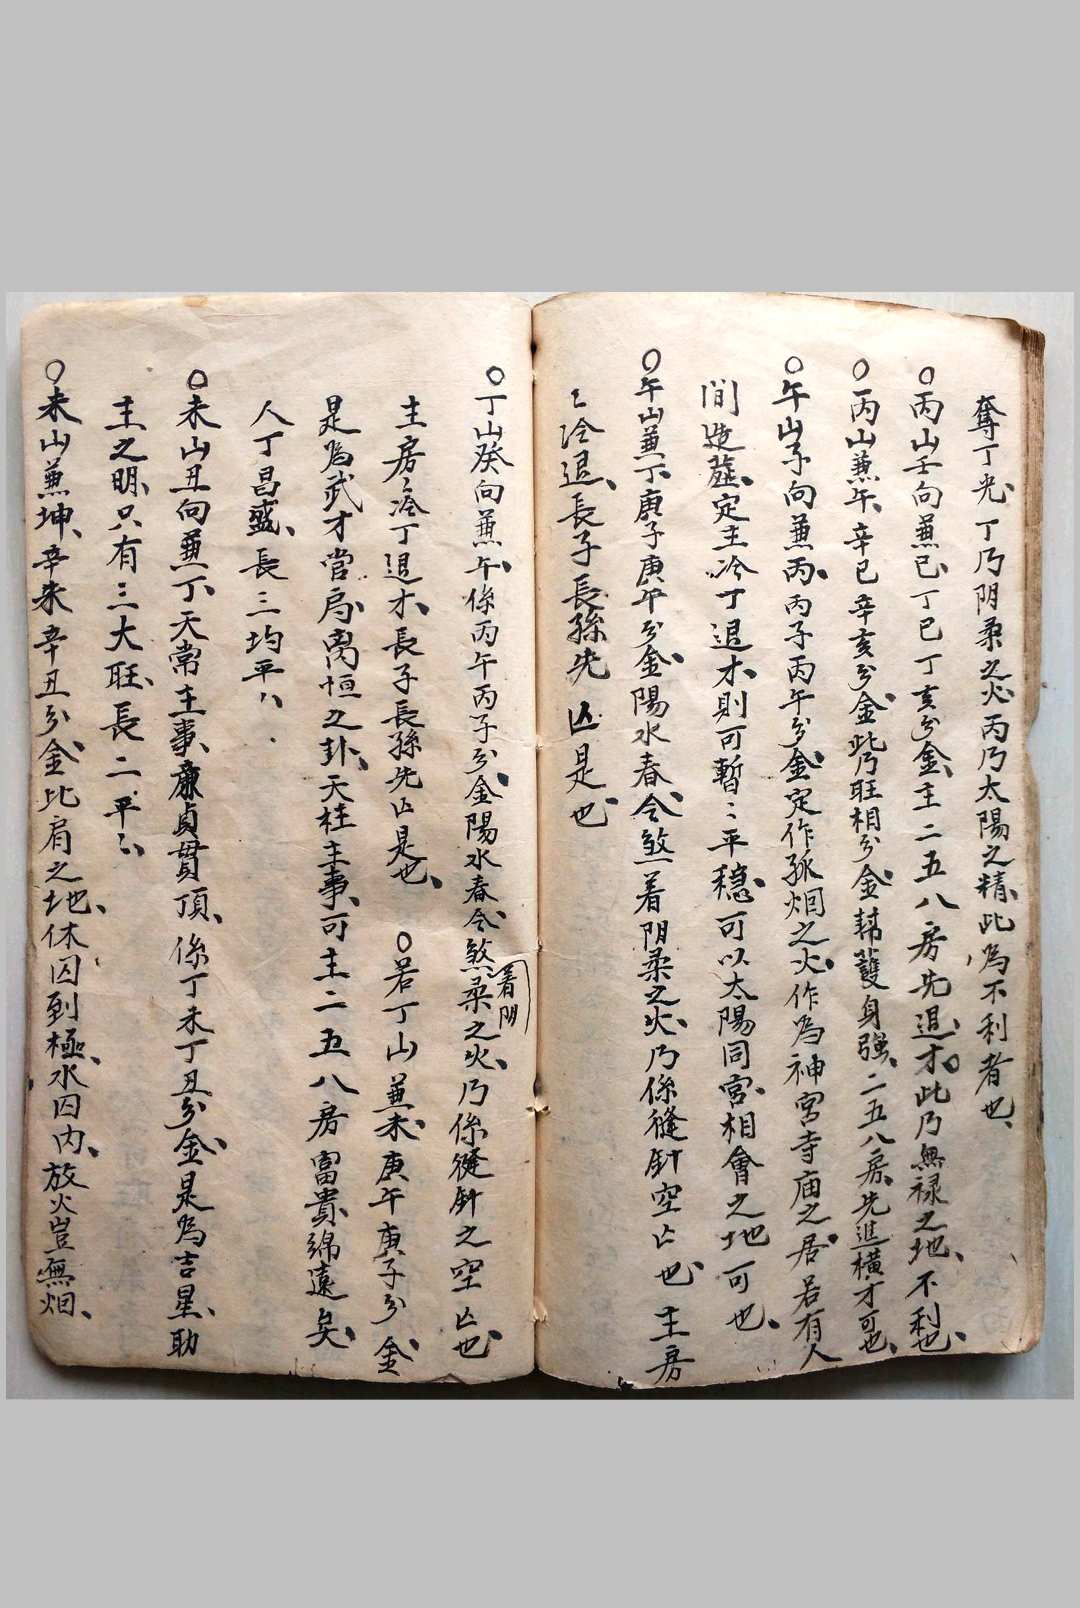 奪丁光、丁乃阴柔之火、丙乃太陽之精、此為不利者也、
〇丙山壬向兼巳、丁巳丁亥分金、主二五八房先退才、此乃無禄之地、不利也、
〇丙山兼午、辛巳辛亥分金、此乃旺相分金、幇護身强、二五八房、先進橫才可也、
〇午山子向兼丙、丙子丙午分金、定作孤烟之火、作為神宮寺庙之居、若有人
間造葬、定主冷丁退才、則可暫〻平穩、可以太陽同宮、相會之地可也、
〇午山兼丁、庚子庚午分金、陽水春、令煞着阴柔之火、乃係縫針空亡也、主房
〻冷退、長子長孫先亡是也、
〇丁山癸向兼午、係丙午丙子分金、陽水春令、煞着阴柔之火、乃係縫針之空亡也、
主房〻冷丁退才、長子長孫先亡是也、〇若丁山兼未、庚午庚子分金、
是為武才當局、离恒之卦、天柱主事、可主二五八房富貴綿遠矣、
人丁昌盛、長三均平八、
〇未山丑向兼丁、天常主事、廉貞貫頂、係丁未丁丑分金、是為吉星、助
主之明、只有三大旺、長二平〻
〇未山兼坤、辛未辛丑分金、比肩之地、休囚到極、水囚内、放火豈無烟、